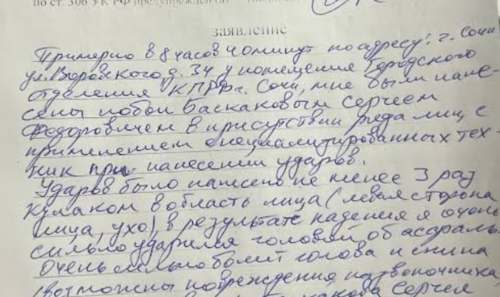 по ст. 306 УК РФ предупрежден
заявление
Примерно в 8 часов 40 минут по адресу: г. Сочи
ул. Воровского, д. 34 у помещения Городского
отделения КПРФ г. Сочи, мне были нане-
сены побои Баскаковым Сергеем
Федоровичем в присутствии ряда лиц, с
применением специализированных тех
ник при нанесении ударов.
Ударов было нанесено не менее 3 раз
кулаком в область лица (левая сторона
лица, ухо), в результате падения я очень
сильно ударился головой об асфальт
Очень сильно болит голова и спина
(возможны повреждения позвоночника
Сергея